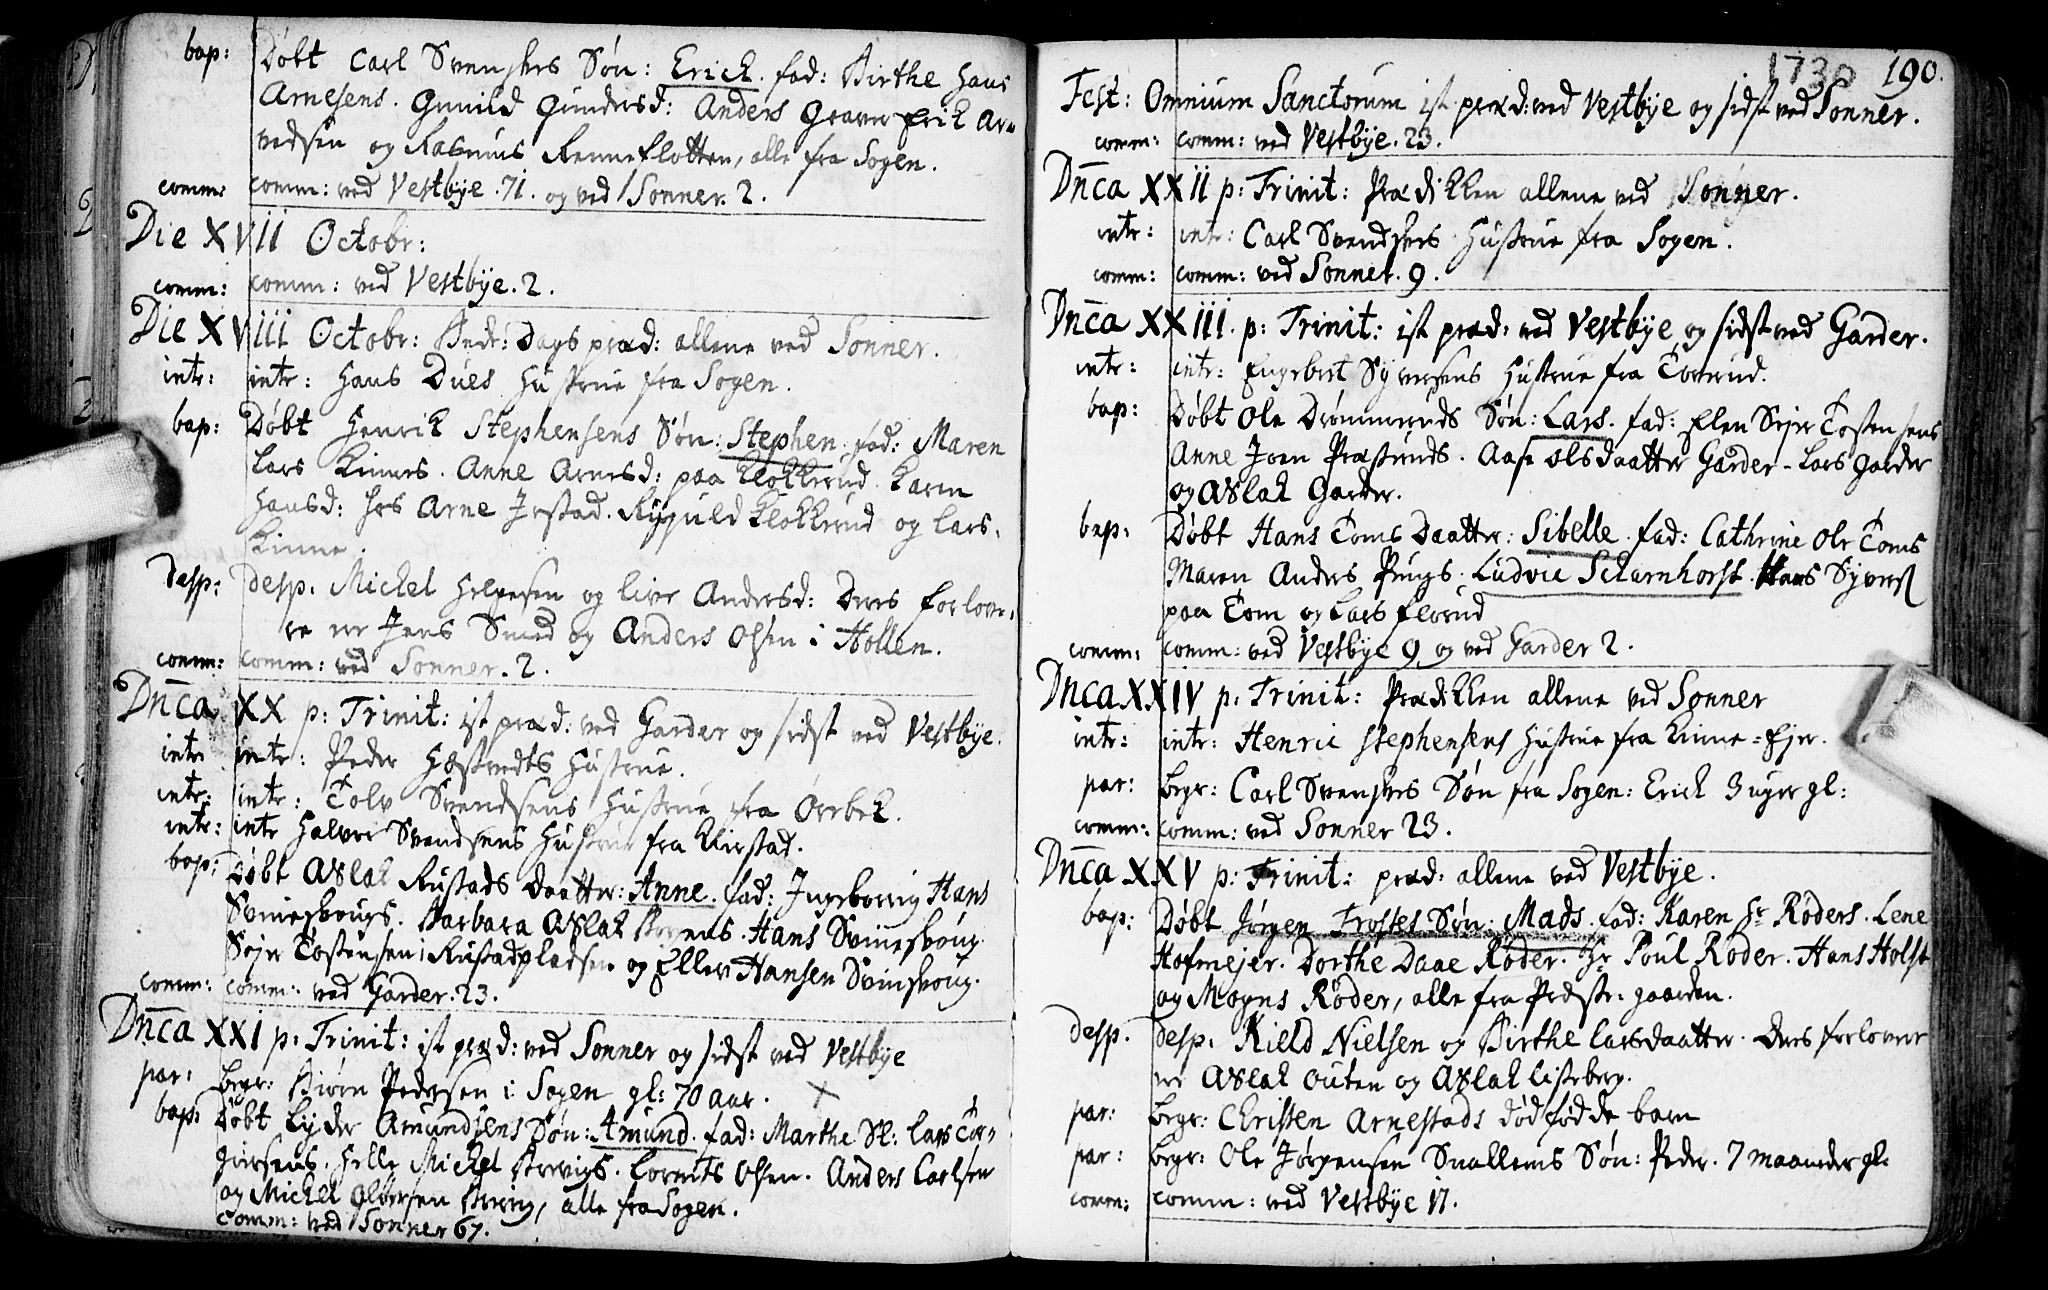 bap: Döbt Carl Svenskes Søn: Erick. fad: Birthe Hans
Arnesens. Gunild Gundersd: Anders Graver Erik Ar=
vedsen og Rasmus Renneflotten, alle fra Sogen.
comm: comm: ved Vestbÿe. 71. og ved Sonner. 2.
Die XVII Octobr:
comm: comm: ved Vestbÿe. 2.
Die XVIII Octobr: Bede: Dags præd: allene ved Sonner.
intr: intr: Hans Dues Hustrue fra Sogen.
bap: Döbt Henrik Stephensens Søn: Stephen. fad: Maren
Lars Kinnes. Anne Arnesd: paa Klokkerud. Karen
Hansd: Arne Irstad. Klokkerud og Lars
Kinne.
desp: desp. Michel Helgesen og Live Andersd: Deres forlove=
re er Jens Smed og Anders Olsen i Hollen.
comm: comm: ved Sonner. 2.
Dnca XX p: Trinit: ist præd: ved Garder og sidst ved Vestbÿe.
intr intr: Peder Hæstvedts Hustrue.
intr: intr: Tolv Svendsens Hustrue fra Örrbek.
intr: intr Halvor Svendsens Hustrue fra Kirstad.
bap: Döbt Aslak Rustads Daatter: Anne. fad: Ingeborrig Hans
Svineskougs. Barbara Aslak Hans Svineskoug.
Söfr Tostensen i Rustadpladsen og Ellev Hansen Svineskoug.
comm: comm: ved Garder. 23.
Dnca XXI p: Trinit: ist præd: ved Sonner og sidst ved Vestbÿe
par: Begr: Biörn Pedersen i Sogen gl: 70 aar. X
bap: Döbt Lyder Amundsens Søn: Amund. fad: Marthe Sl: Lars Tor=
giersens. Helle Michel Lorents Olsen. Anders Carlsen
og Michel alle fra Sogen.
comm: ved Sonner 67.
1730 190.
Fest: Omnium Sanctorum ist præd: ved Vestbÿe og sidst ved Sonner.
comm: comm: ved Vestbÿe. 23.
Dnca XXII p: Trinit: Prædikken allene ved Sonner.
intr: intr: Carl Svendskes Hustrue fra Sogen.
comm: comm: ved Sonner. 9.
Dnca XXIII. p: Trinit: ist præd: ved Vestbÿe og sidst ved Garder.
intr: intr: Engebret Syversens Hustrue fra Torerud.
bap: Döbt Ole Drömmeruds Søn: Lars. fad: Elen Söfr Tostensens
Anne Joen Aase Olsdaatter Garder - Lars Garder
og Aslak Garder.
bap: Döbt Hans Toms Daatter: Sibelle. fad: Cathrine Ole Toms
Maren Anders Pungs. Ludvic Scharnhorst. Hans Syvers
paa Tom og Lars Florud
comm: comm: ved Vestbÿe 9 og ved Garder 2.
Dnca XXIV p: Trinit: Prædikken allene ved Sonner
intr: intr: Henric Stephensens Hustrue fra Kinne=Ejer.
par: Begr: Carl Svenskes Søn fra Sogen: Erick 3 uger gl:
comm: comm: ved Sonner 23.
Dnca XXV p: Trinit: præd: allene ved Vestbÿe.
bap: Döbt Jörgen Trostes Søn: Mads. fad: Karen Hr Röders. Lene
Hofmejer. Dorthe Daae Röder. Hr Poul Röder. Hans Holst
og Mogns Röder, alle fra Præste=gaarden.
desp. desp. Kield Nielsen og Birthe Larsdaatter. Deres forlovere
er Aslak Outen og Aslak Listeberg.
par: Begr: Christen Arnestads dödfödde barn
par: Begr: Ole Jörgensen Snallems Søn: Peder. 7 maaneder gl:
comm: comm: ved Vestbÿe 17.